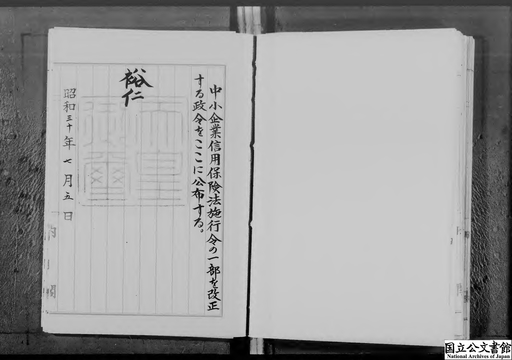 中小企業信用保険法施行令の一部を改正
する政令をここに公布する。
裕仁
昭和三十年七月五日
国立公文書館
National Archives of Japan